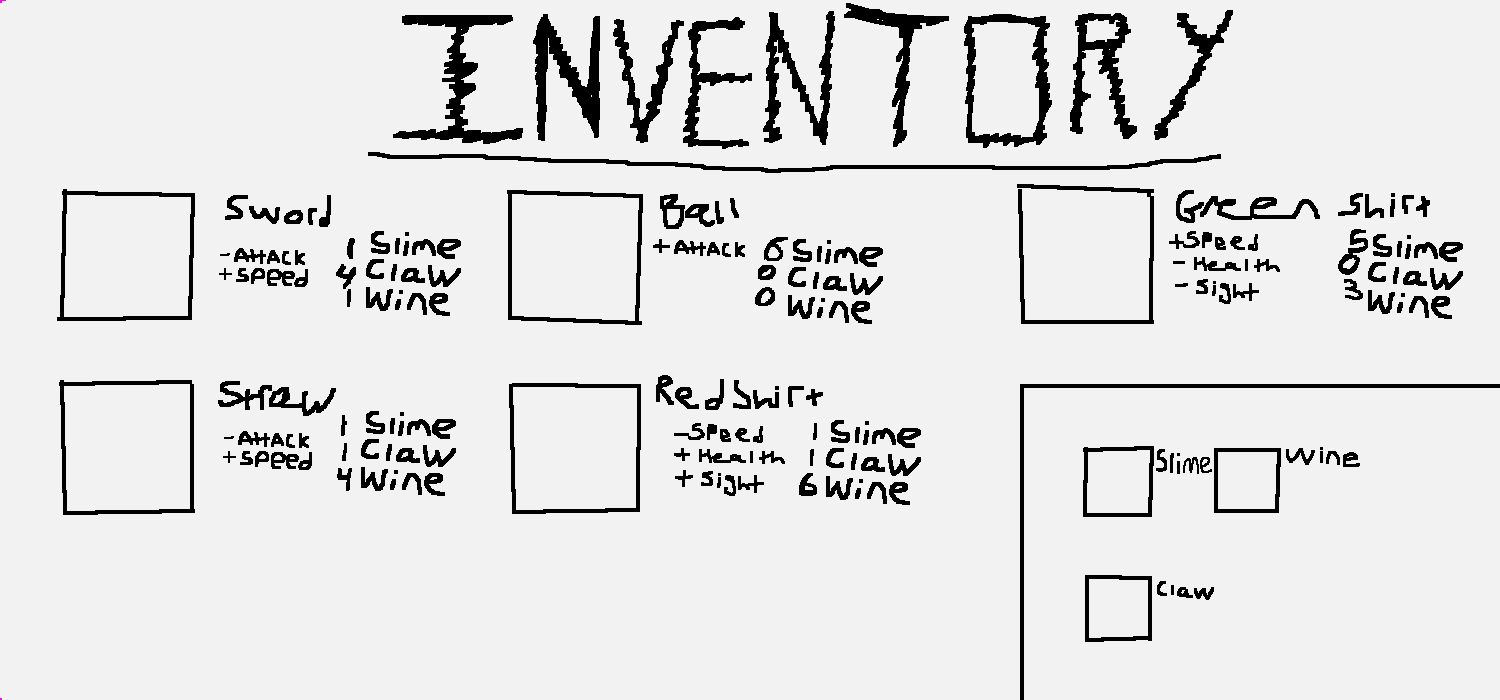 INVENTORY
Sword
-Attack
+Speed
1 Slime
4 Claw
1 Wine
Ball
+Attack
6 Slime
0 Claw
0 Wine
Green Shirt
+Speed
-Health
-Sight
5 Slime
0 Claw
3 Wine
Straw
-Attack
+Speed
1 Slime
1 Claw
4 Wine
Red Shirt
-Speed
+Health
+Sight
1 Slime
1 Claw
6 Wine
Slime
Wine
Claw